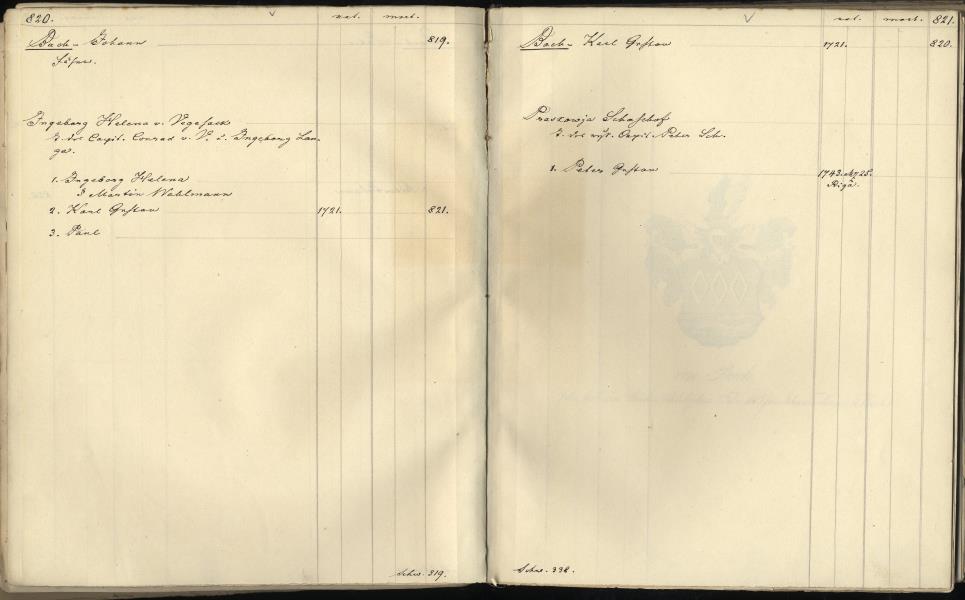 820. nat. mort.
Bock - Johann 819.
Ingeborg Helena v. Vegesack
T. des Capit. Conrad v. V. u. Ingeborg Lan-
ge.
1. Ingeborg Helena
Martin Wohlmann
2. Karl Gustav 1721. 821.
3. Paul
Schw. 319.
nat. mort. 821.
Bock - Karl Gustav 1721. 820.
Praskowja
T. des Capit. Peter Sch.
1. Peter Gustav 1743.
Riga.
Schw. 338.